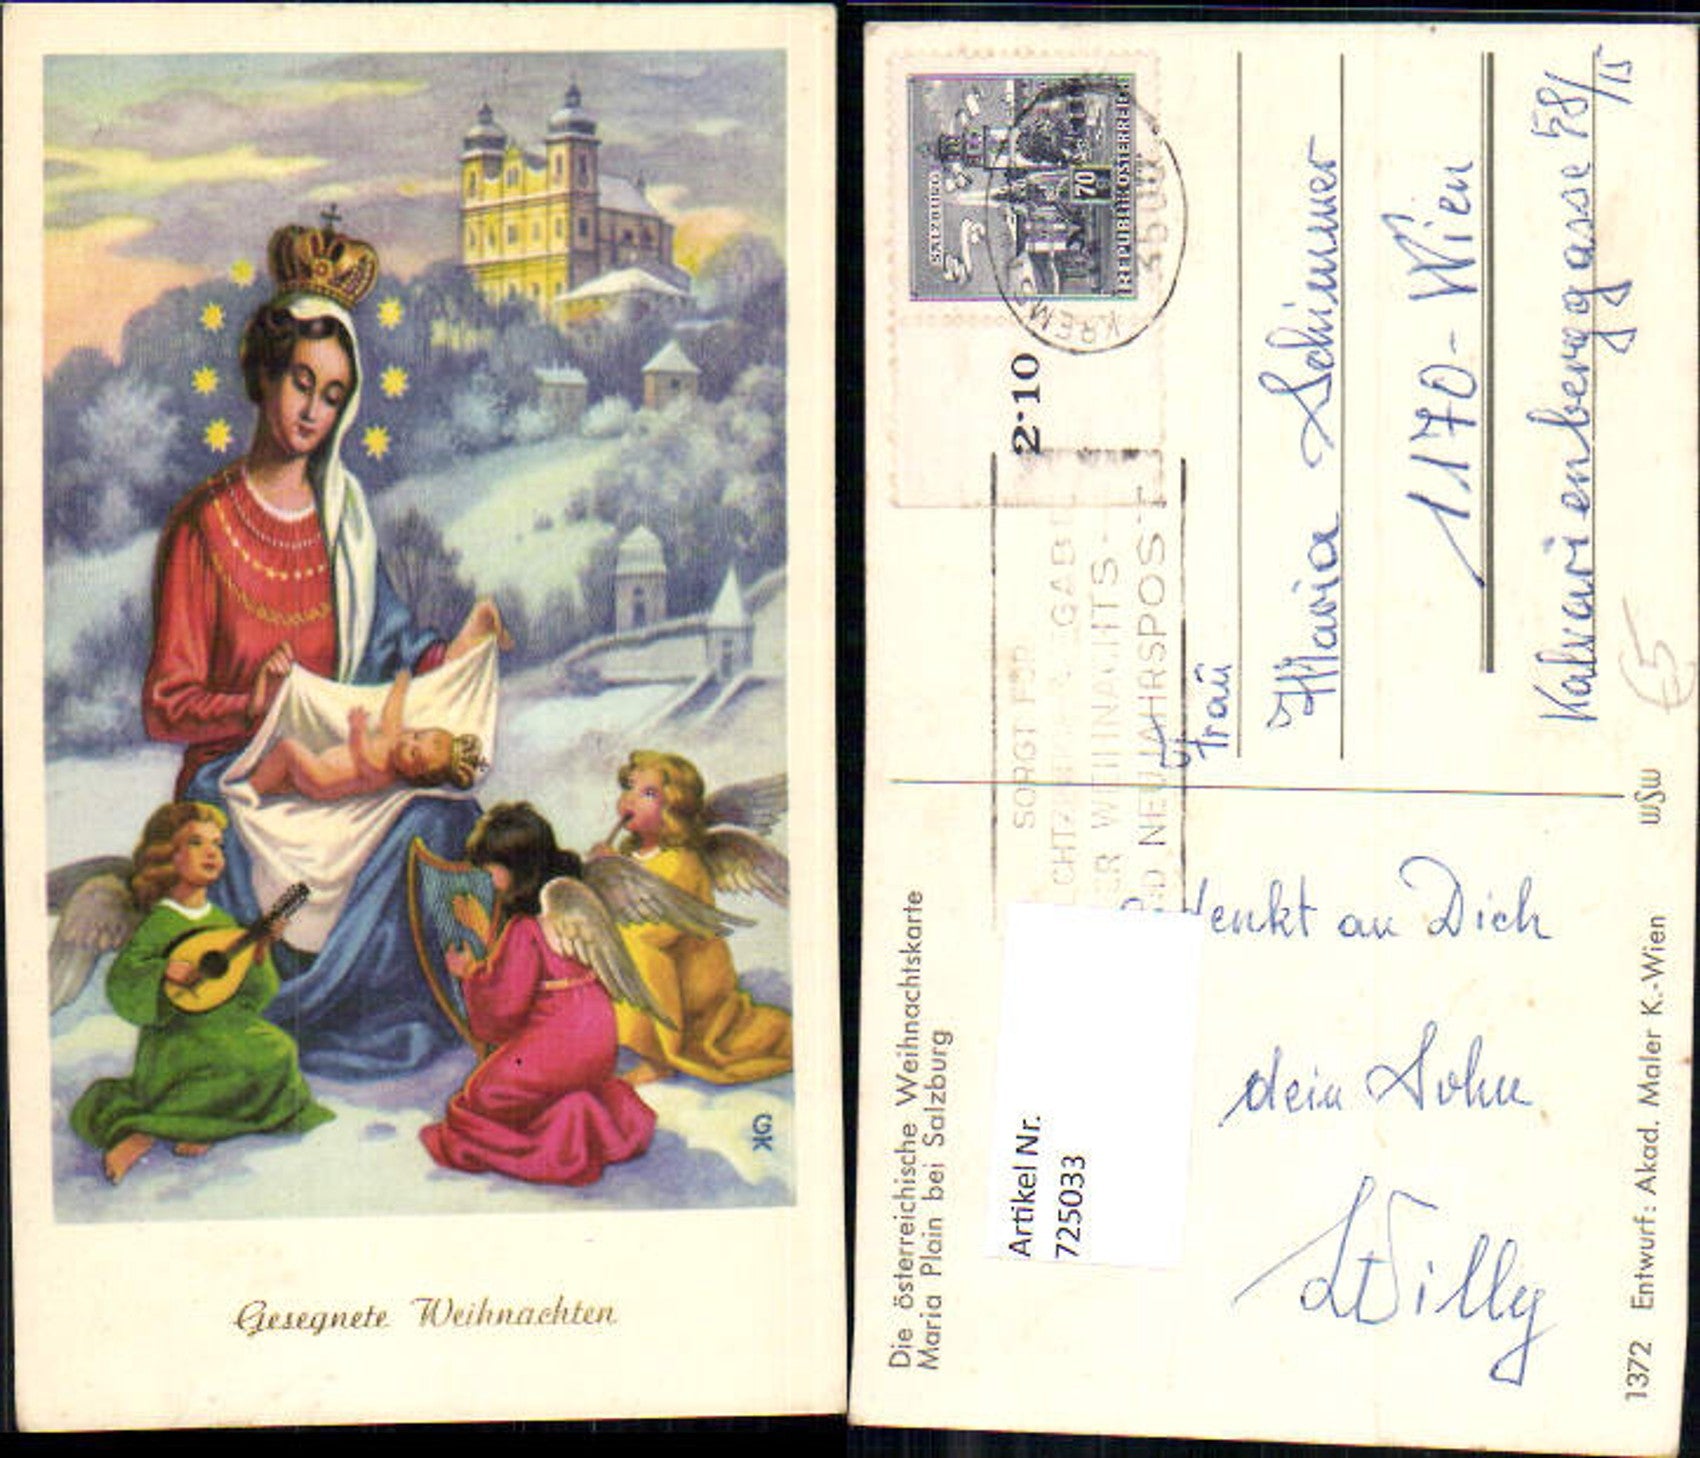 Gesegnete Weihnachten
GK
SALZBURG
70
REPUBLIK ÖSTERREICH
KREMS
2·10
SORGT FÜR
ER WEIHNACHTS-
ND NEUJAHRSPOST
Frau
Maria Schimmer
1170-Wien
Kalvarienberggasse 58/15
€5
denkt an Dich
dein Sohn
Willy
Artikel Nr.
725033
Die österreichische Weihnachtskarte
Maria Plain bei Salzburg
1372 Entwurf: Akad. Maler K.-Wien WSW